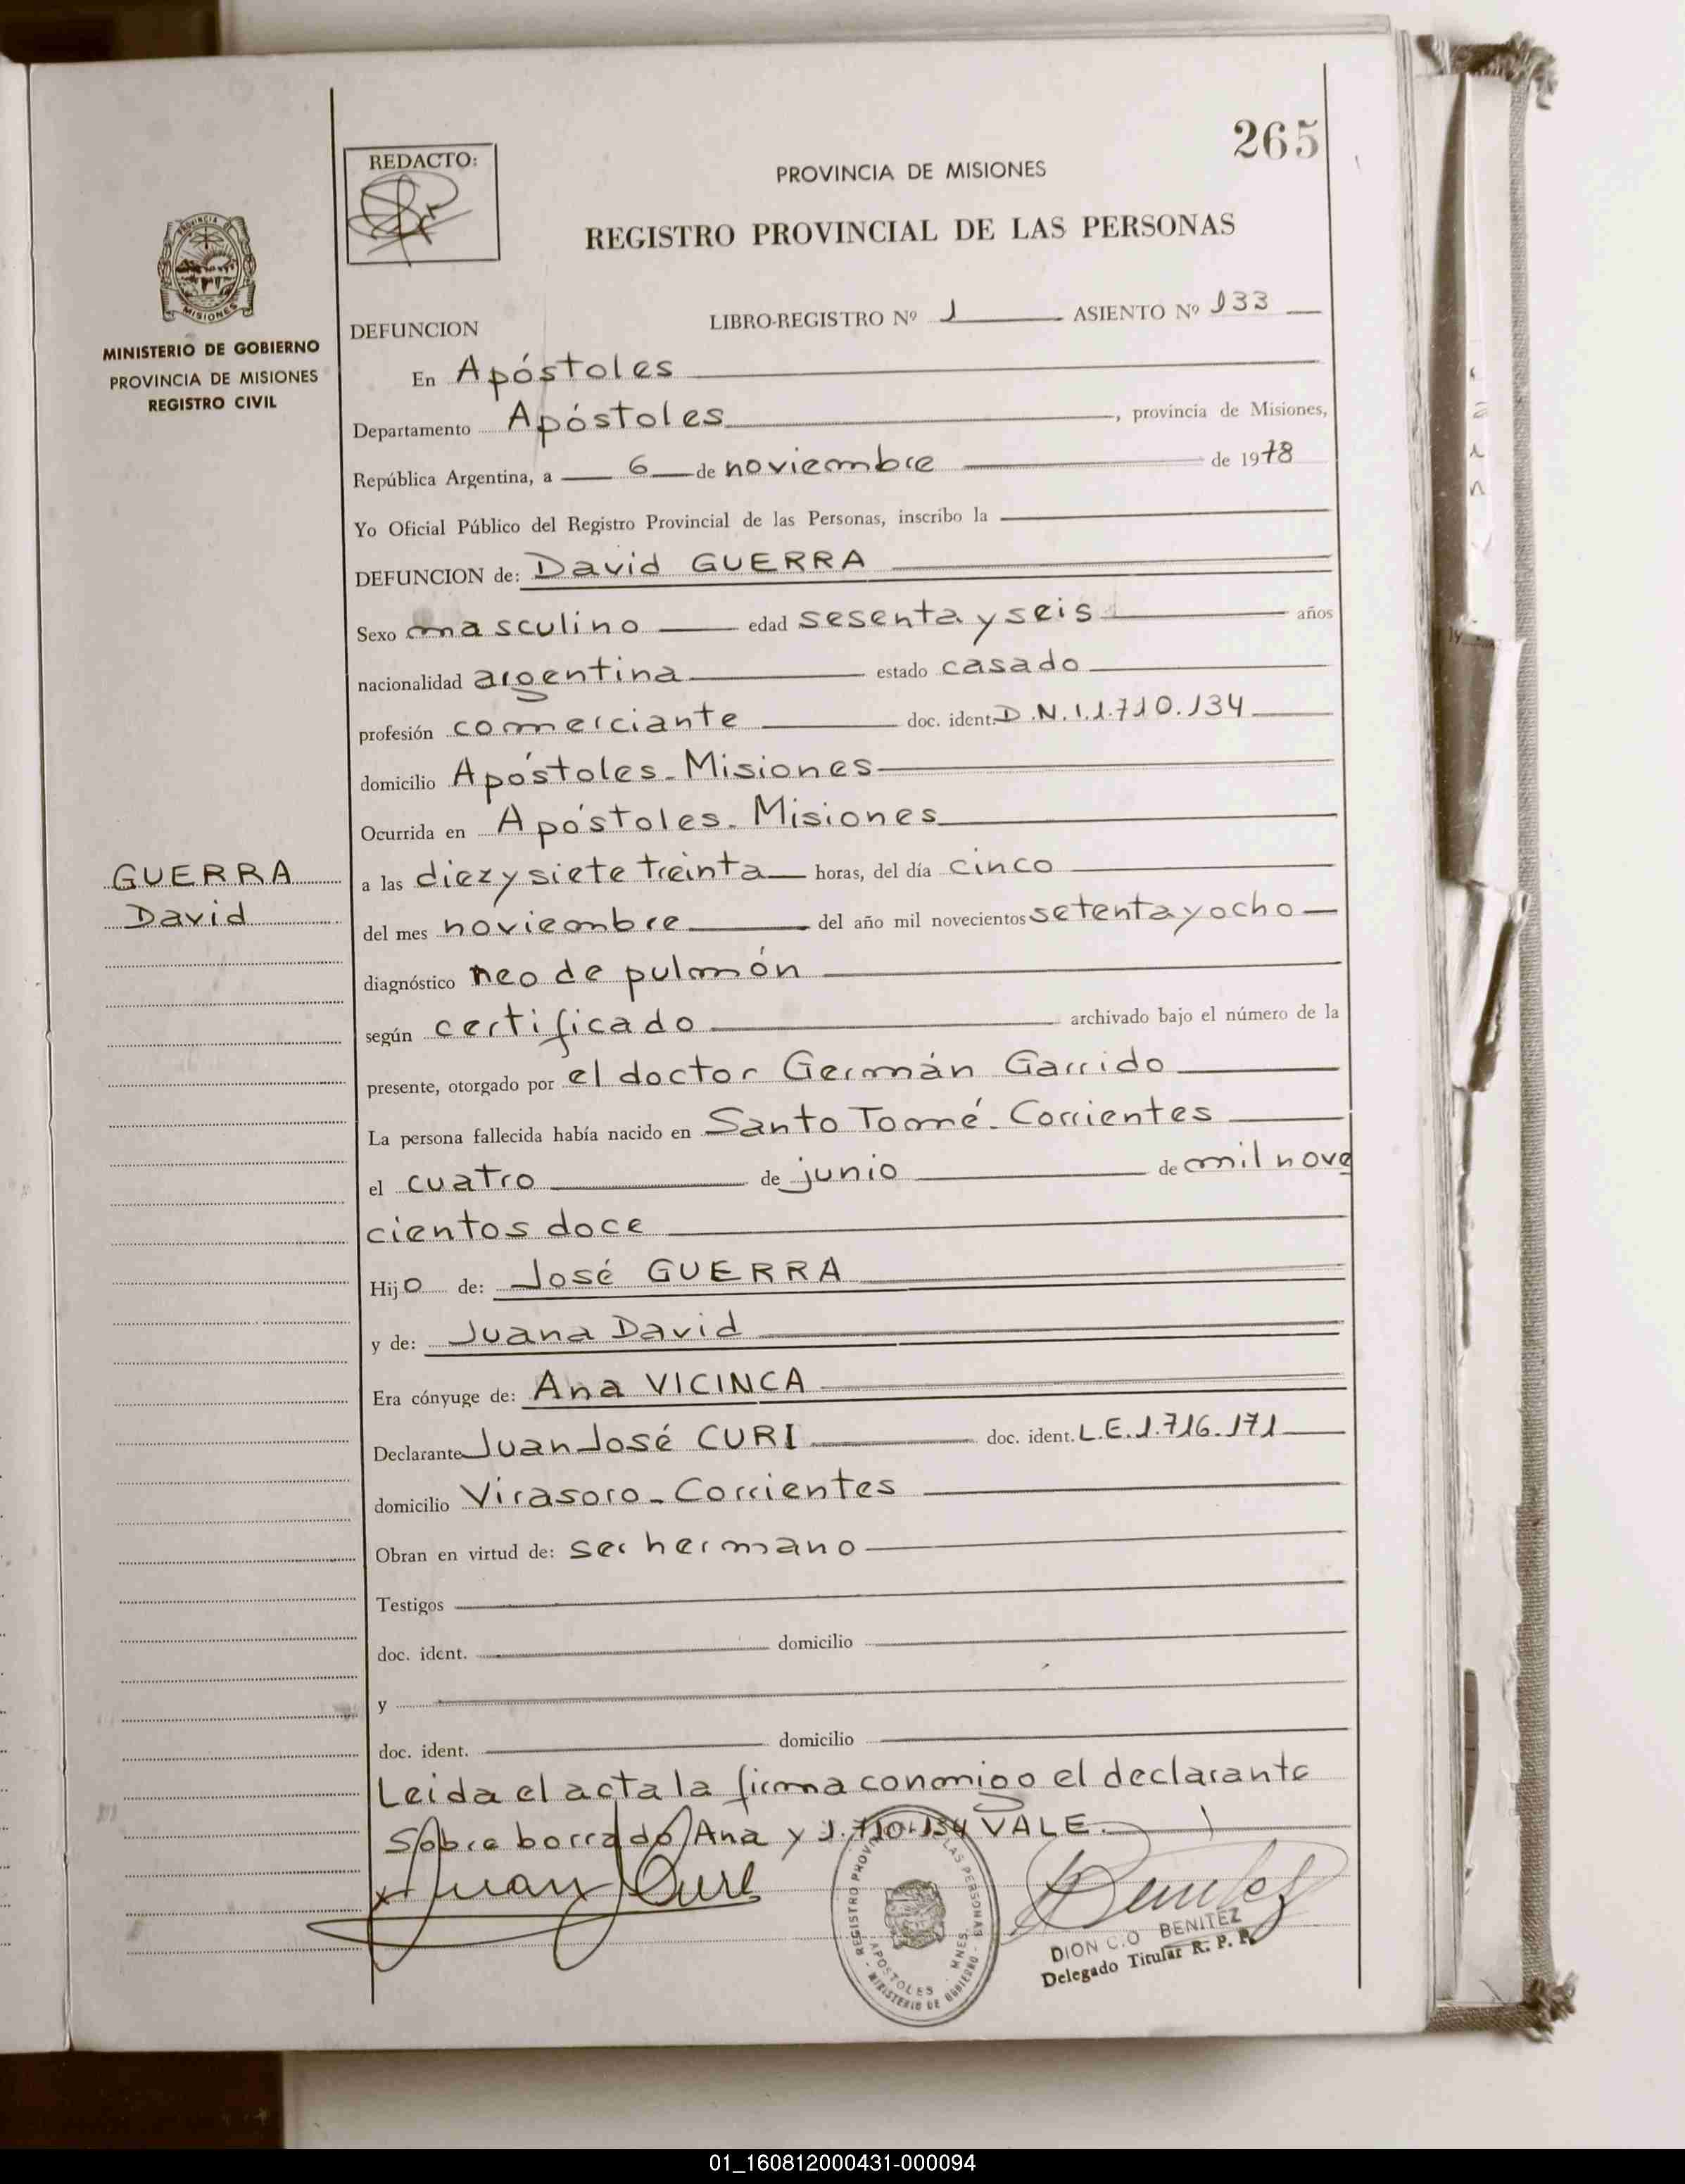 265
REDACTO:
PROVINCIA DE MISIONES
REGISTRO PROVINCIAL DE LAS PERSONAS
MISIONES
MINISTERIO DE GOBIERNO
PROVINCIA DE MISIONES
REGISTRO CIVIL
DEFUNCION LIBRO-REGISTRO Nº 1 ASIENTO Nº 133
En Apóstoles
Departamento Apóstoles, provincia de Misiones,
República Argentina, a 6 de noviembre de 1978
Yo Oficial Público del Registro Provincial de las Personas, inscribo la
DEFUNCION de: David GUERRA
Sexo masculino edad sesenta y seis años
nacionalidad argentina estado casado
profesión comerciante doc. ident. D.N.I.1.710.134
domicilio Apóstoles - Misiones
Ocurrida en Apóstoles - Misiones
GUERRA
David
a las diez y siete treinta horas, del día cinco
del mes noviembre del año mil novecientos setenta y ocho
diagnóstico neo de pulmón
según certificado archivado bajo el número de la
presente, otorgado por el doctor Germán Garrido
La persona fallecida había nacido en Santo Tomé - Corrientes
el cuatro de junio de mil nove
cientos doce
Hijo de: José GUERRA
y de: Juana David
Era cónyuge de: Ana VICINCA
Declarante Juan José CURI doc. ident. L.E.1.716.171
domicilio Virasoro - Corrientes
Obran en virtud de: ser hermano
Testigos
doc. ident. domicilio
y
doc. ident. domicilio
Leida el acta la firma conmigo el declarante
Sobre borrado/Ana y 1.710.134 VALE.
Juan Curi
Benitez
REGISTRO PROV LAS PERSONAS
APOSTOLES - MNES.
MINISTERIO DE GOBIERNO
DION C.O BENITEZ
Delegado Titular R. P. P.
01_160812000431-000094